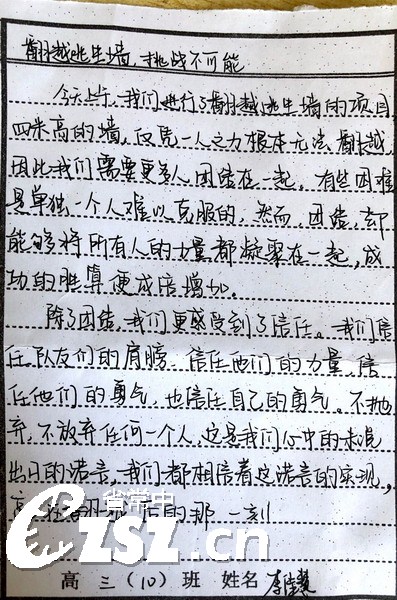 翻越逃生墙，挑战不可能
今天上午，我们进行了翻越逃生墙的项目，
四米高的墙，仅凭一人之力根本无法翻越，
因此我们需要更多人团结在一起。有些困难
是单独一个人难以克服的，然而，团结，却
能够将所有人的力量都凝聚在一起，成
功的胜算便成倍增加。
除了团结，我们更感受到了信任。我们信
任队友们的肩膀，信任他们的力量，信
任他们的勇气，也信任自己的勇气。不抛
弃，不放弃任何一个人，这是我们心中的未说
出口的诺言，我们都相信着这诺言的实现，
在翻 后的那一刻
省常中
czsz.cn
高三（10）班 姓名 李